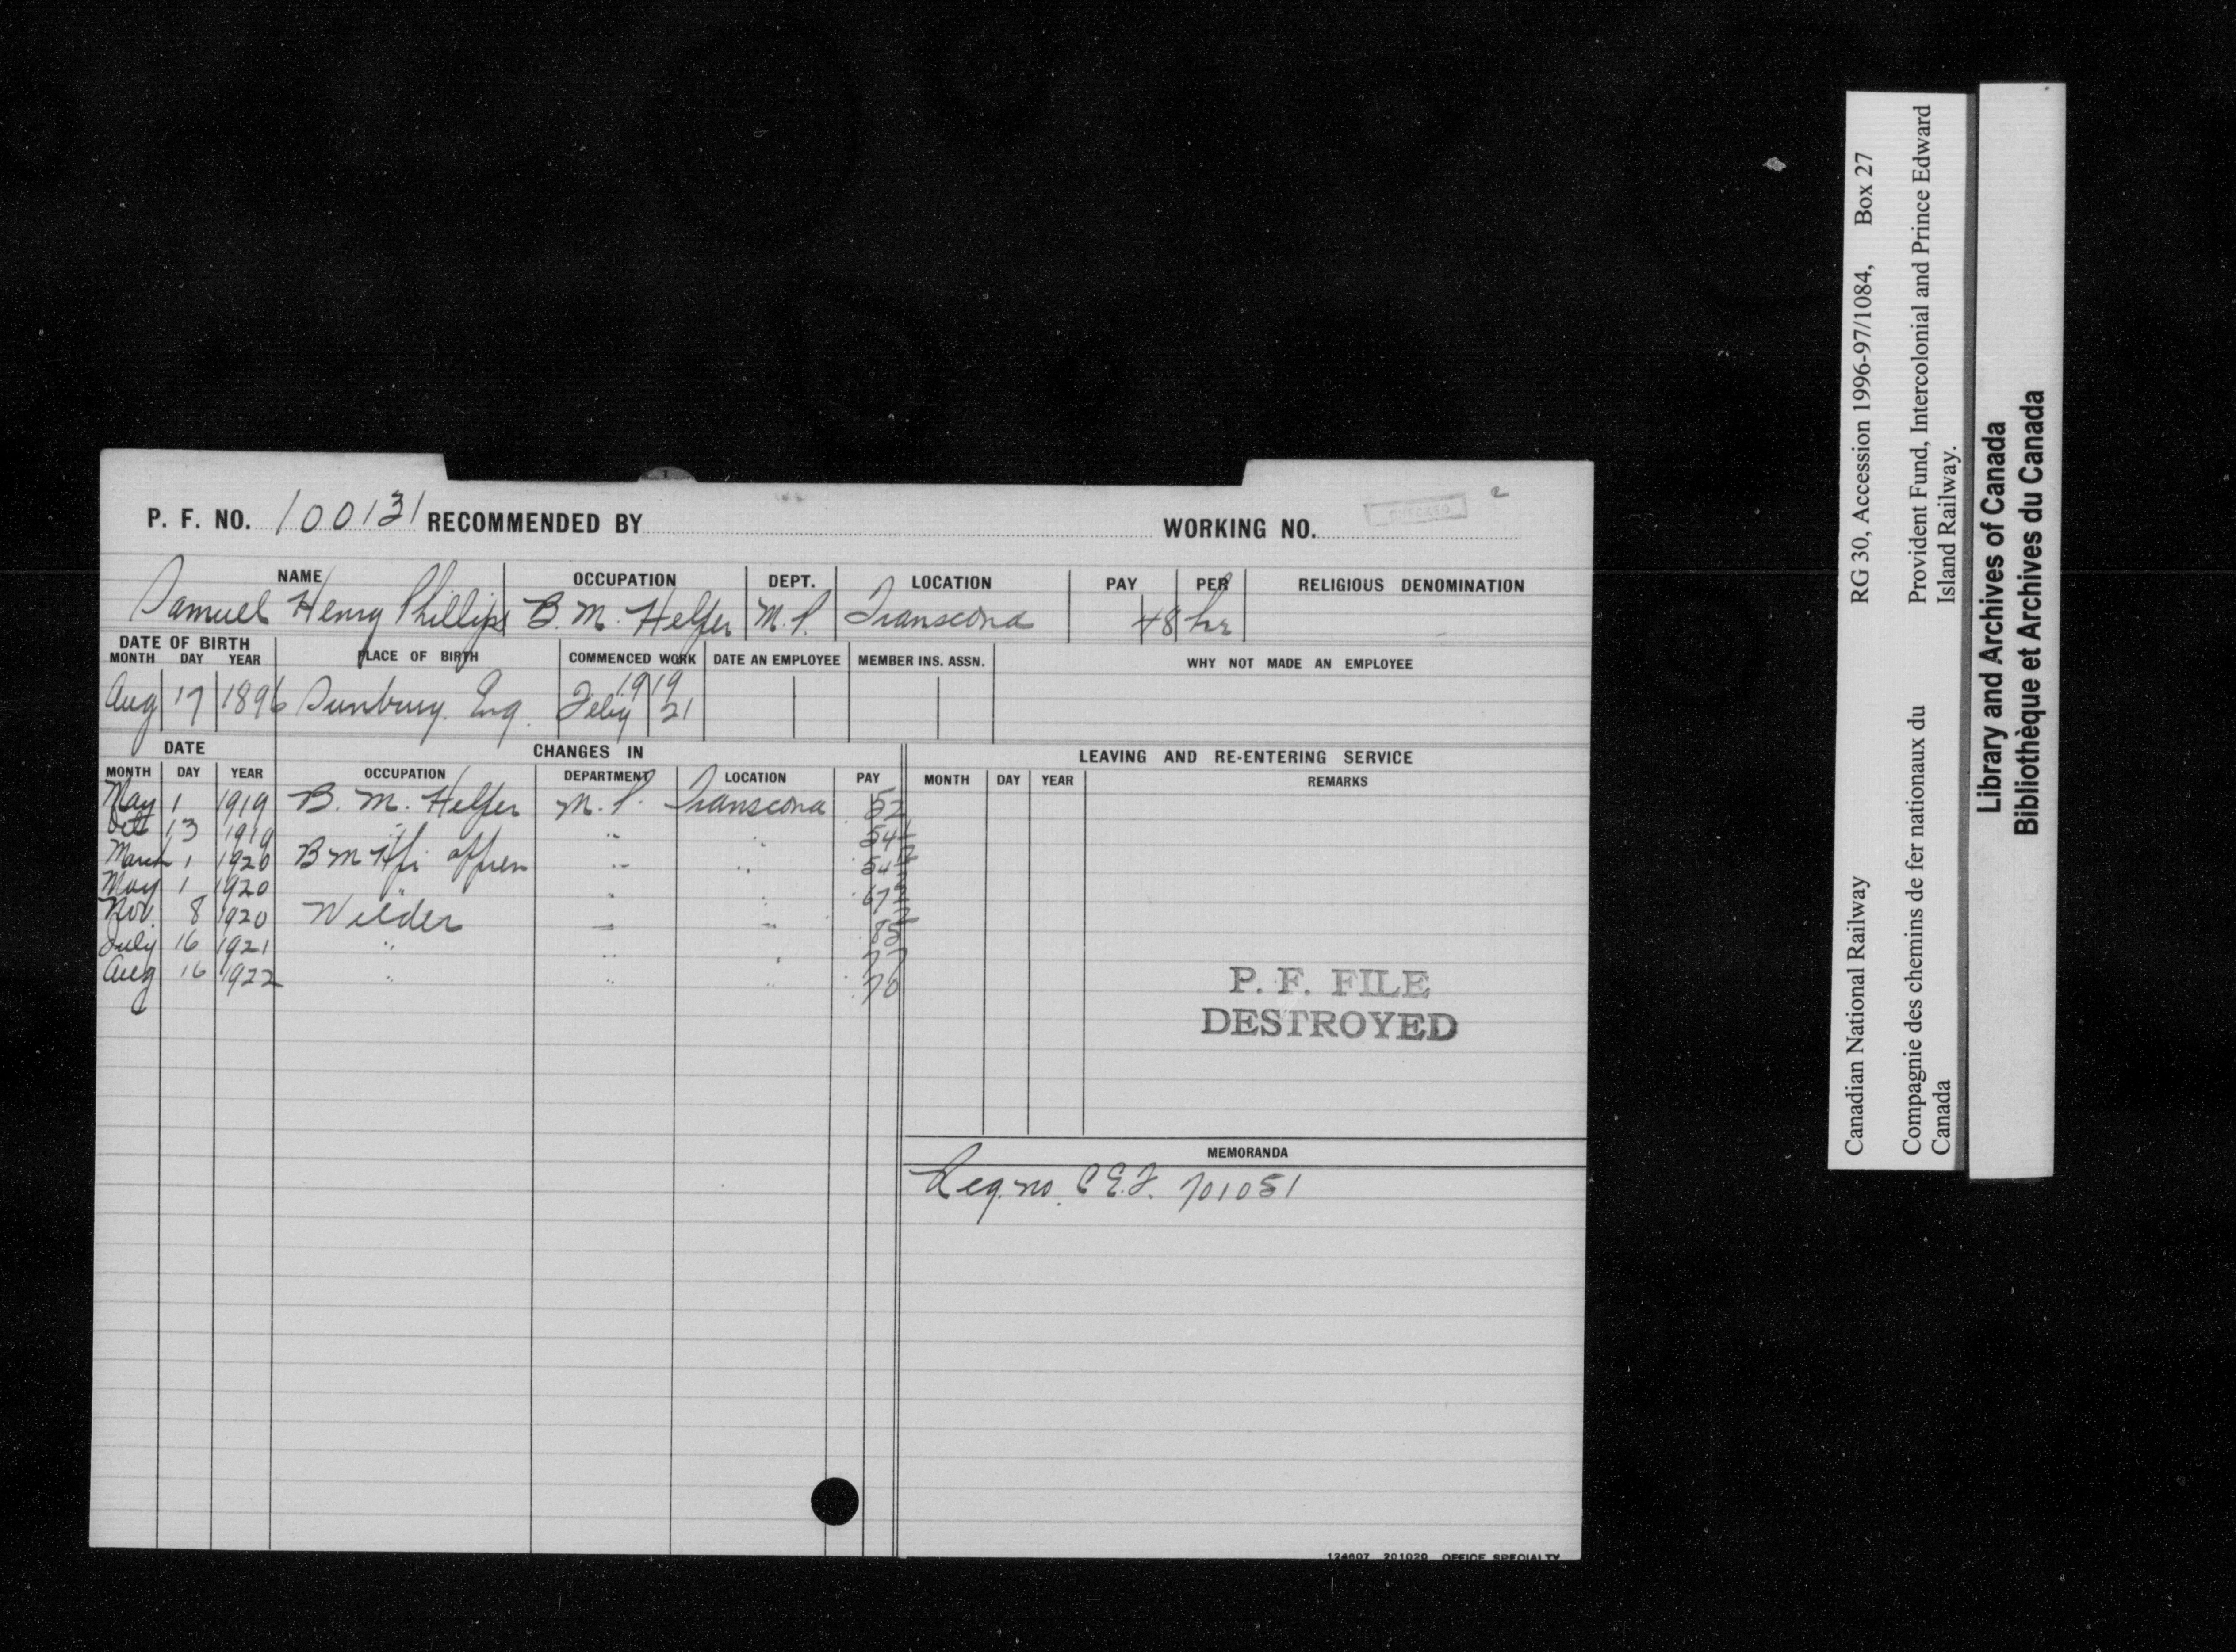 P. F. NO. 100131 RECOMMENDED BY WORKING NO.
CHECKED
NAME OCCUPATION DEPT. LOCATION PAY PER RELIGIOUS DENOMINATION
Samuel Henry Phillips B. M. Helper M. P. Transcona 48 hr
DATE OF BIRTH
MONTH DAY YEAR PLACE OF BIRTH COMMENCED WORK DATE AN EMPLOYEE MEMBER INS. ASSN. WHY NOT MADE AN EMPLOYEE
1919
Aug 17 1896 Sunbury. Eng. Feby 21
DATE CHANGES IN LEAVING AND RE-ENTERING SERVICE
MONTH DAY YEAR OCCUPATION DEPARTMENT LOCATION PAY MONTH DAY YEAR REMARKS
May 1 1919 B. M. Helper M. P. Transcona 52
Oct 13 1919 " " " 54
March 1 1920 B M " " 54
May 1 1920 " " " 67
Nov. 8 1920 Welder " " 85
July 16 1921 " " " 77
Aug 16 1922 " " " 70
P. F. FILE
DESTROYED
MEMORANDA
Reg. no. C.E.F. 701051
124607 201020 OFFICE SPECIALTY
Canadian National Railway RG 30, Accession 1996-97/1084, Box 27
Compagnie des chemins de fer nationaux du Canada
Provident Fund, Intercolonial and Prince Edward Island Railway.
Library and Archives of Canada
Bibliothèque et Archives du Canada